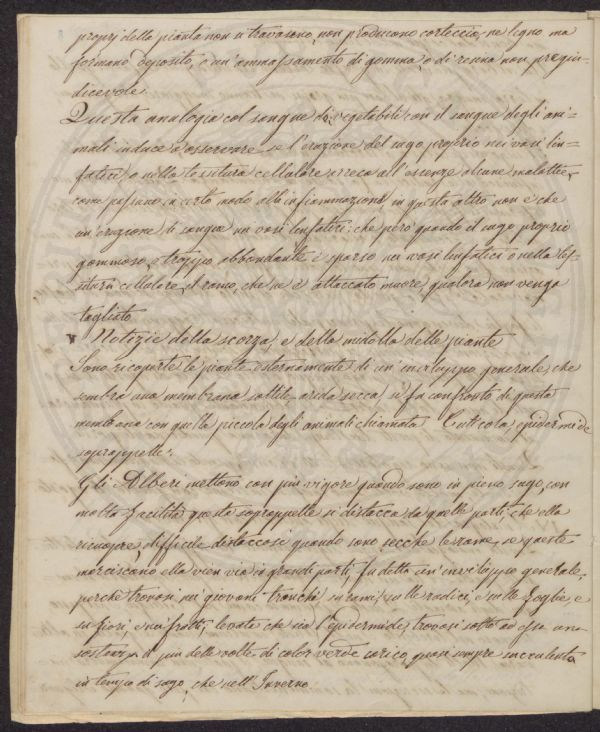 proprj della pianta non si travasono, non producono corteccia, ne legno ma
formano deposito, o un'ammassamento di gomma, o di resina non pregiu=
dicevole.
Questa analogia col sangue di vegetabili con il sangue degli ani=
mali induce a osservare se l'erazione del sugo proprio nei vasi lin=
fatici, o nella tessitura cellulare arreca all'essenze alcune malattie,
come passano in certo modo alle infiammazioni, in questa altro non è che
un'erazione di sangue nei vasi linfatici: che però quando il sugo proprio
gommoso, e troppo abbondante è sparso nei vasi linfatici o nella tes=
situra cellulare, il ramo, che ne è attaccato muore, qualora non venga
tagliato
Notizie della scorza, e della midolla delle piante
Sono ricoperte le piante esternamente di un'inviluppo generale, che
sembra una membrana sottile, arida secca, si fa confronto di questa
membrana con quella piccola degli animali chiamata Cuticola epidermide
soprappelle.
Gli Alberi mettono con più vigore quando sono in pieno sugo, con
molta facilità questa soprappelle si distacca da quelle parti, che ella
ricuopre, difficile distaccosi quando sono secche le rame, se queste
marciscano ella vien via in grandi parti, fu detta un'inviluppo generale,
perche trovasi nei giovani tronchi su rami, su le radici, e sulle foglie, e
su fiori, e sui frutti, levata che sia l'epidermide, trovasi sotto ad essa una
sostanza il più delle volte di color verde carico, quasi sempre succulenta
in tempo di sugo, che nell'Inverno